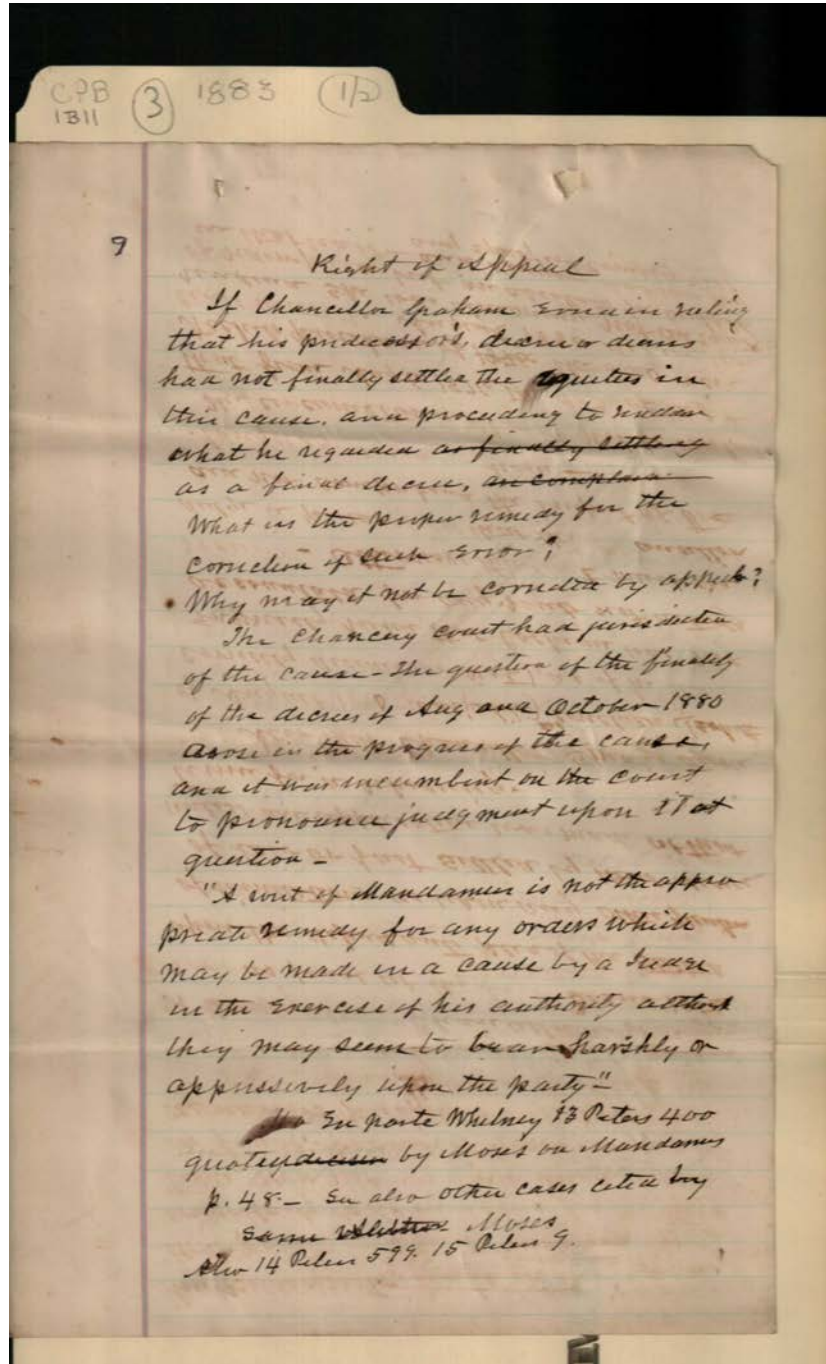 CPB
1311
3
1883
(1/2)
9
Right of Appeal
If Chancellor Graham Erred in ruling
that his predecessor's, decree or decrees
had not finally settled the equities in
this cause. and proceeding to render
what he regarded as finally settling
as a final decree, an complain
What is the proper remedy for the
correction of such Error?
Why may it not be corrected by appeal?
The Chancery Court had jurisdiction
of the cause - The question of the finality
of the decrees of Aug and October 1880
arose in the progress of the cause,
and it was incumbent on the Court
to pronounce judgment upon that
question -
"A writ of Mandamus is not the appro
priate remedy for any orders which
may be made in a cause by a Judge
in the Exercise of his authority although
they may seem to bear harshly or
oppressively upon the party"
Ex parte Whitney 13 Peters 400
quoted by Moses on Mandamus
p. 48 - See also other cases cited by
same Moses
Also 14 Peters 599. 15 Peters 9.